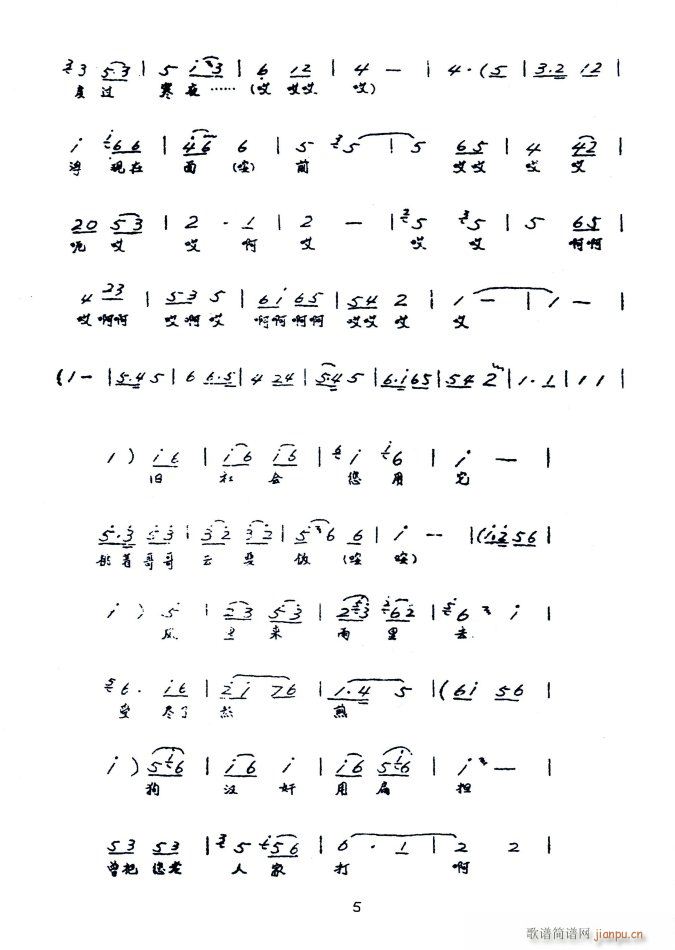 3 3 5·3 | 5 i 3 | 6 12 | 4 — | 4·(5 | 3·2 12 |
度过 寒夜……(哎 哎哎 哎)
i i66 | 46 6 | 5 35 | 5 65 | 4 42 |
现在 面(咹) 前 哎哎 哎 哎
20 53 | 2 · 1 | 2 — | 35 35 | 5 65 |
呃 哎 哎 啊 哎 哎 哎 啊啊
4 23 | 53 5 | 6i 65 | 54 2 | 1 — | 1 — |
哎啊啊 哎啊哎 啊啊啊啊 哎哎哎 哎
(1— | 5·45 | 6 6·5 | 4 24 | 5·45 | 6·i65 | 54 2 | 1·1 | 1 1 |
1 ) i6 | i6 i6 | 6i i6 | i — |
旧 社会 您用它
5·3 53 | 32 32 | 5 6 6 | i -- | (i·2 56 |
着哥哥去 饭 (咹 咹)
i ) 5 | 23 53 | 23 62 | 56 3 i |
风 里来 雨里 去
56· i6 | 2i 76 | 1·4 5 | (6i 56 |
受 尽了 熬 煎
i ) 5i6 | i6 i | i6 5i6 | i — |
狗 汉奸 用扁 担
53 53 | 35 i56 | 6 · 1 | 2 2 |
曾把您老 人家 打 啊
5
歌谱简谱网
jianpu.cn